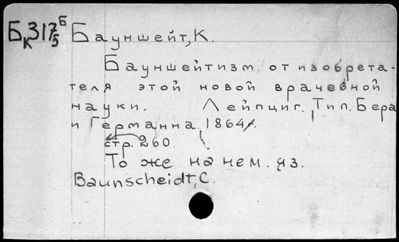 Бк 317/5 б Бауншейт, К.
Бауншейтизм от изобрета-
теля этой новой врачебной
науки. Лейпциг. Тип. Бера
и Германна. 1864 г.
стр. 260.
То же на нем. яз.
Baunscheidt, C.